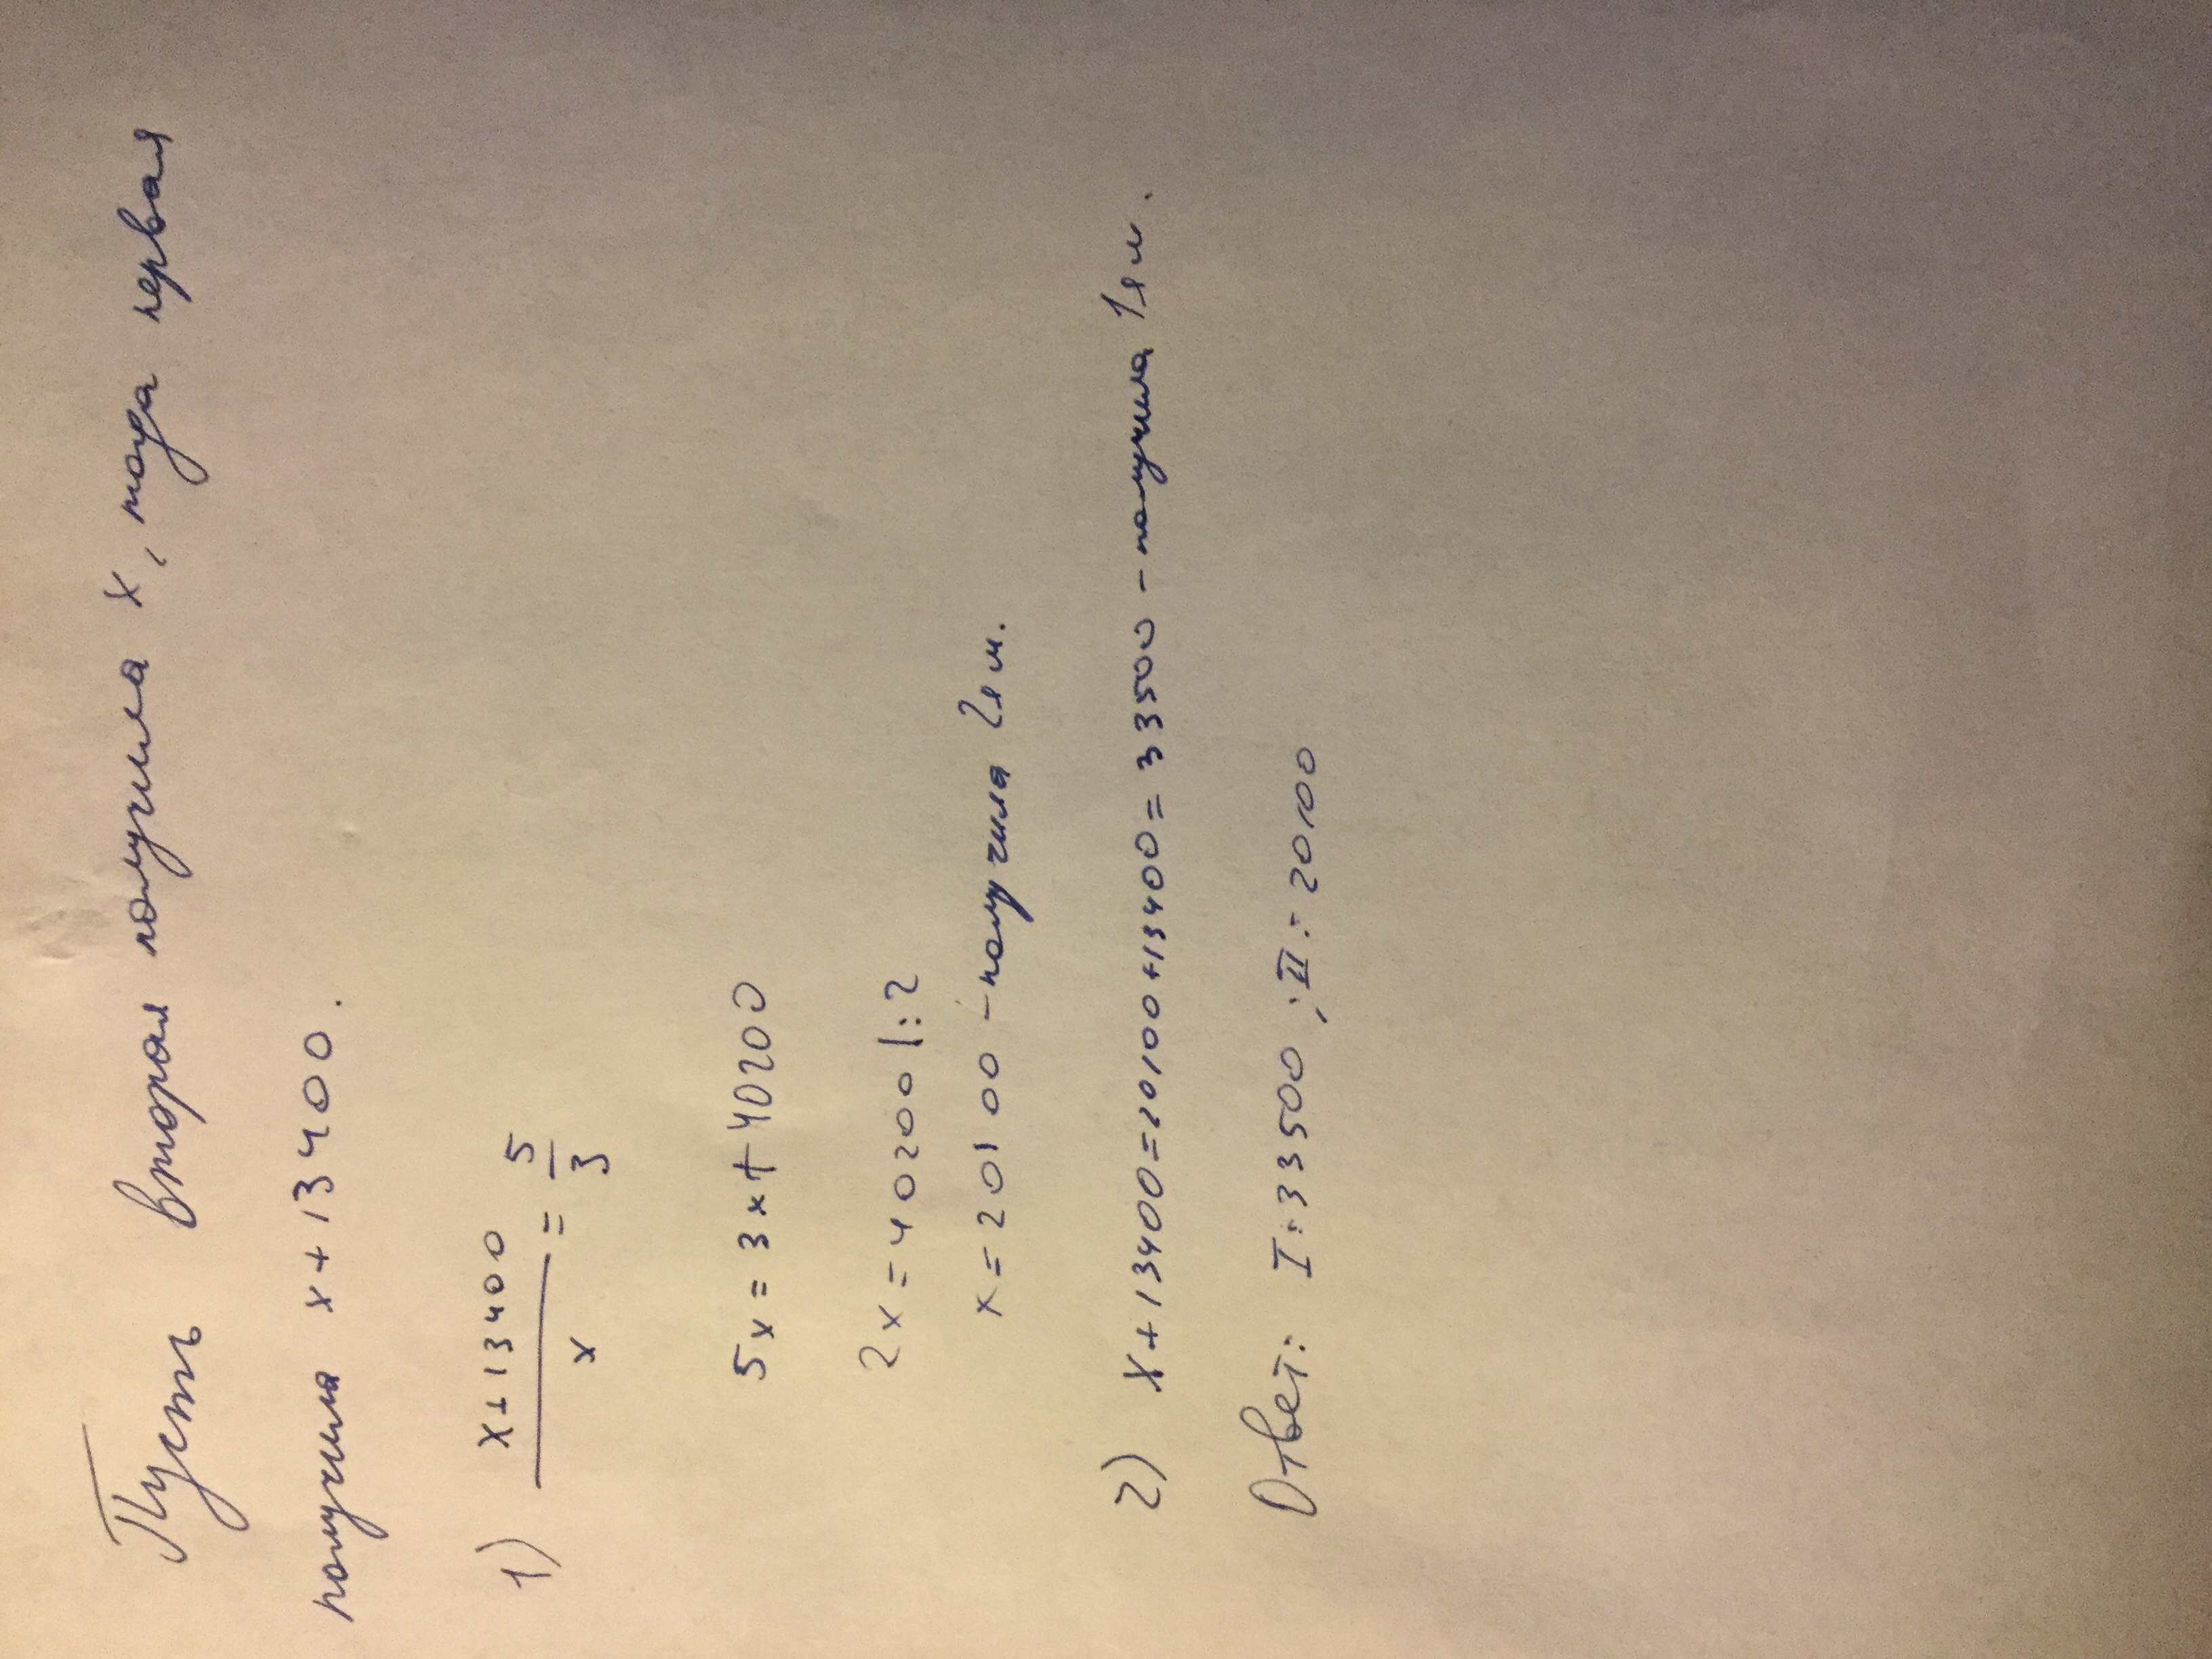 Пусть вторая получила x, тогда первая
получила x+13400.
1) x+13400/x = 5/3
5x = 3x+40200
2x = 40200 |:2
x = 20100 - получила 2я м.
2) x+13400=20100+13400= 33500 - получила 1я м.
Ответ: I: 33500 ; II: 20100